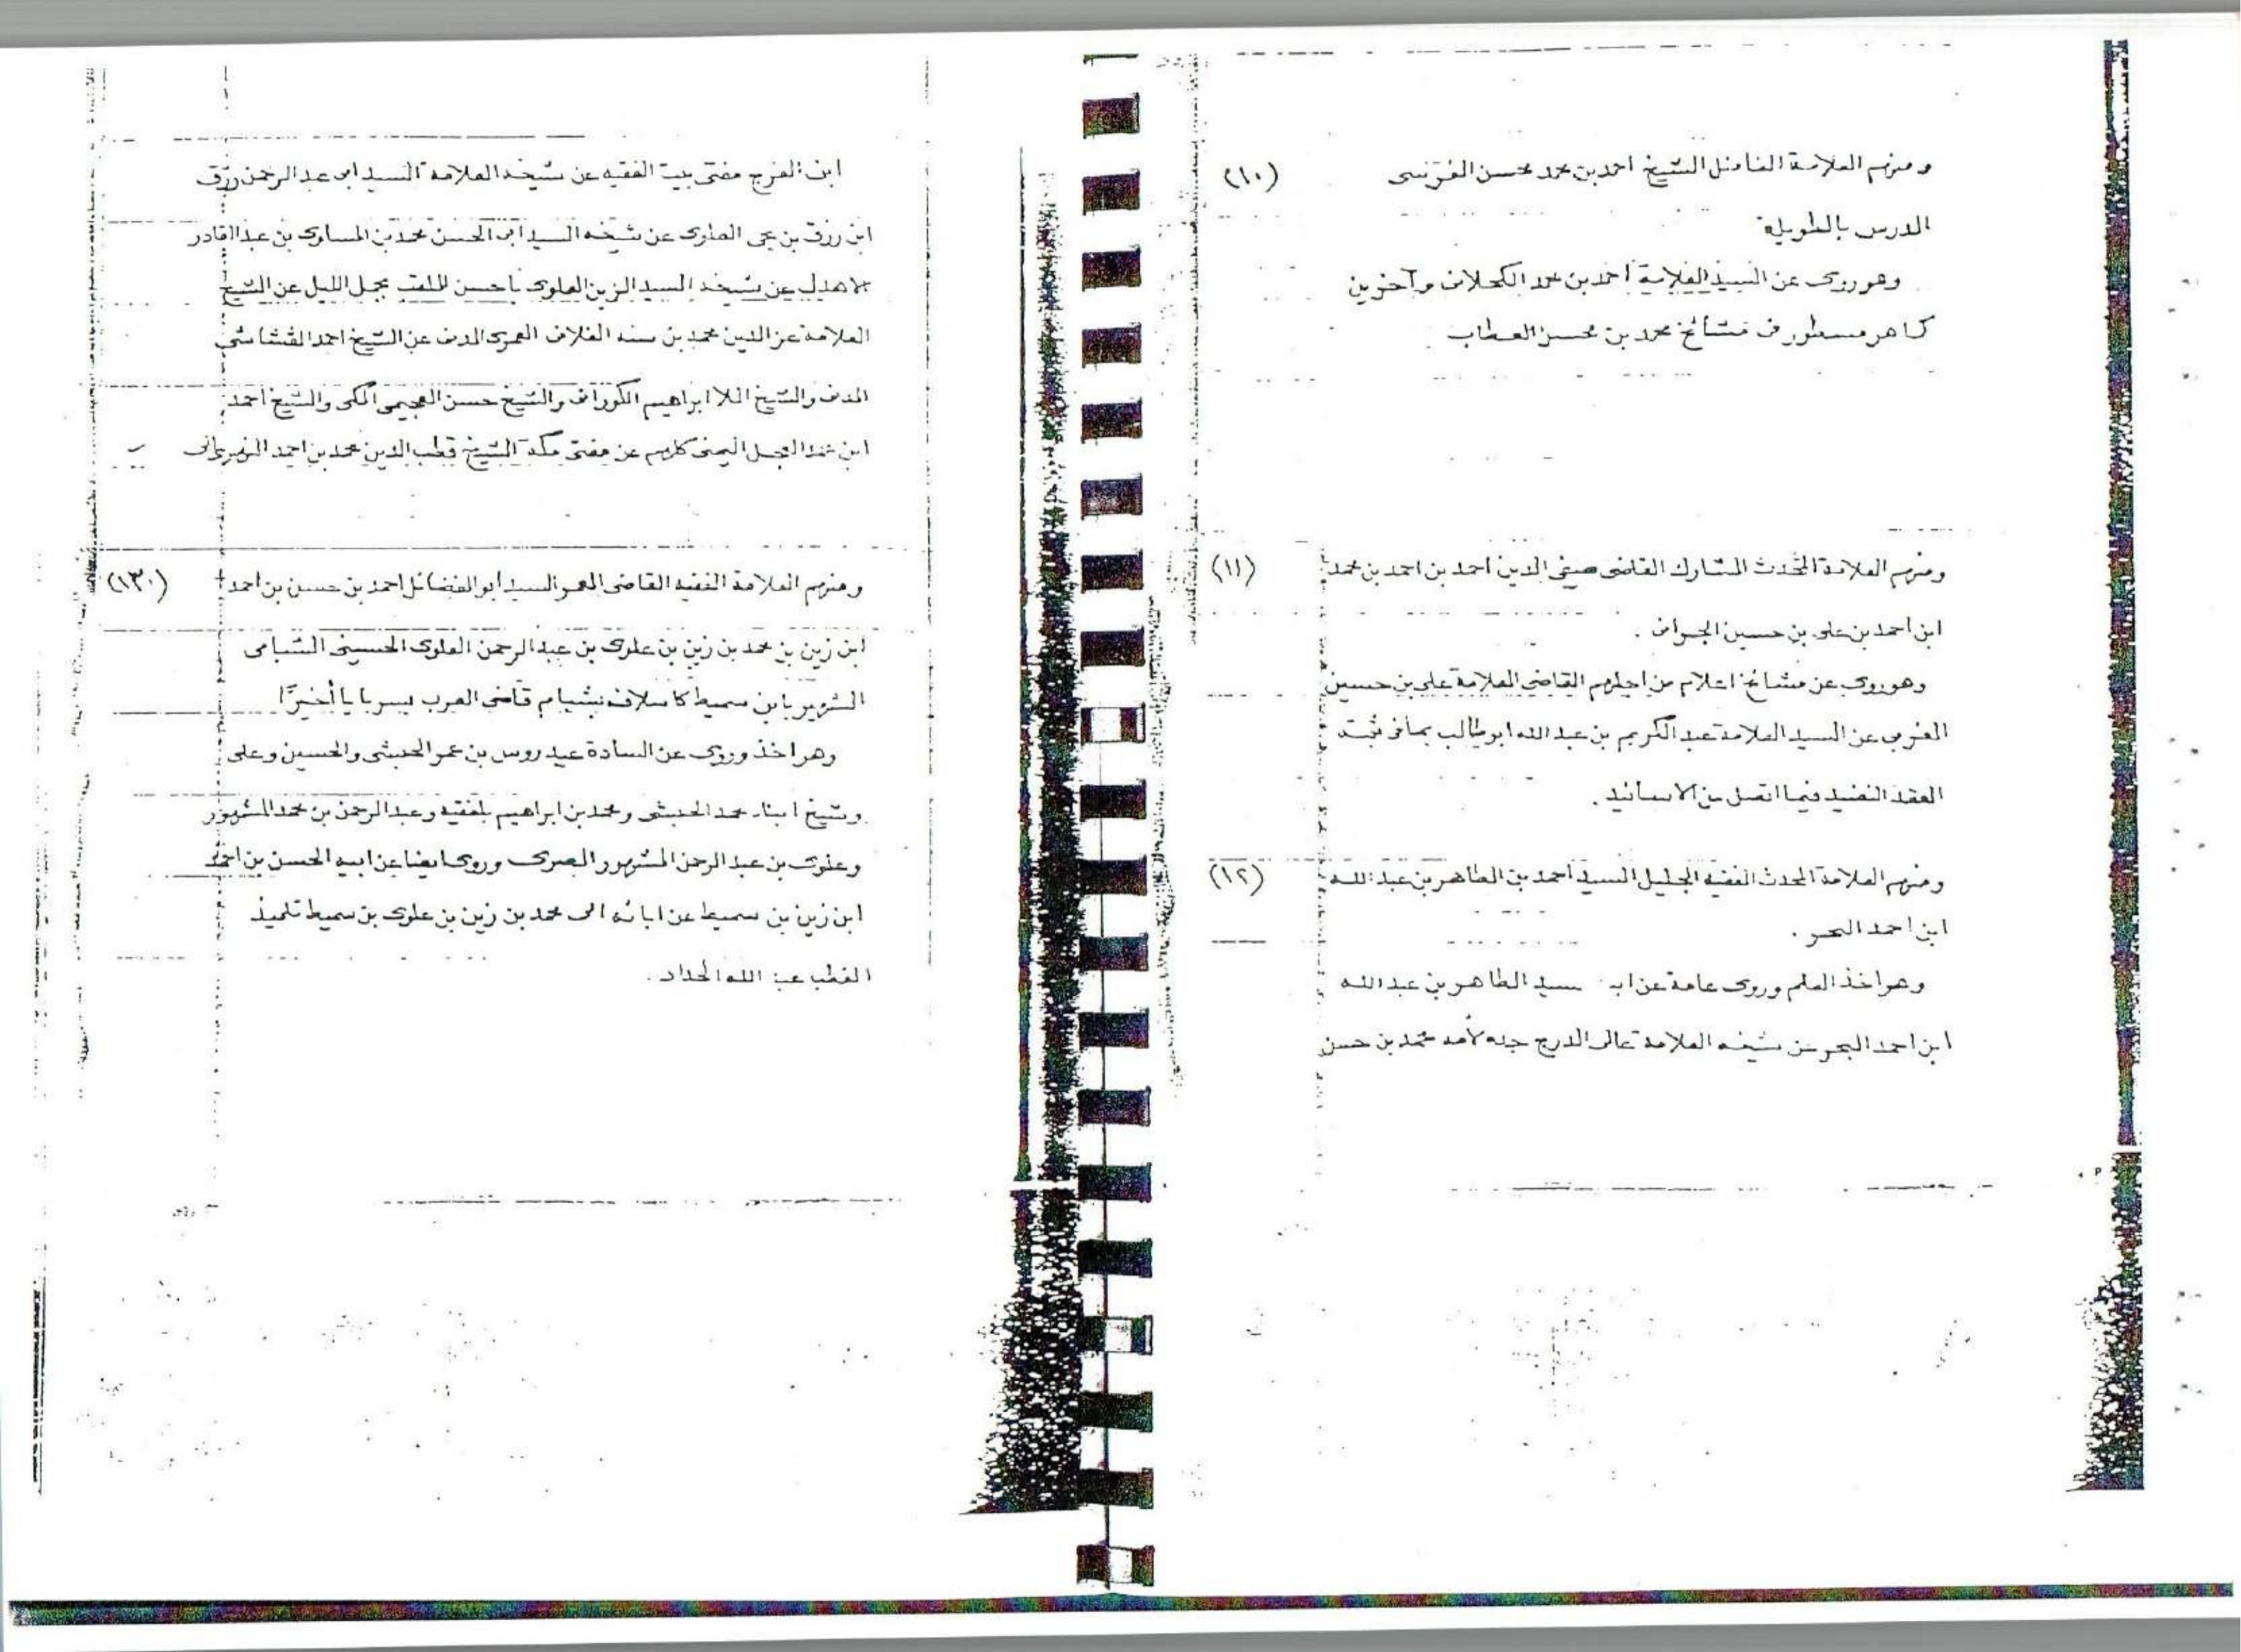 ومنهم العلامة الفاضل الشيخ احمد بن محمد محسن القرنسى (١٠)
الدرس بالطويلة
وهو روى عن السيد العلامة احمد بن محمد الكحلانى وآخرين
كما هو مسطور فى مشائخ محمد بن محسن العطاب
ومنهم العلامة المحدث المشارك القاضى صفى الدين احمد بن احمد بن محمد (١١)
ابن احمد بن على بن حسين الجرافى .
وهو روى عن مشائخ اعلام من اجلهم القاضى العلامة على بن حسين
المغربى عن السيد العلامة عبد الكريم بن عبد الله ابو طالب بما فى ثبته
العقد النضيد فيما اتصل من الاسانيد .
ومنهم العلامة المحدث الفقيه الجليل السيد احمد بن الطاهر بن عبد الله (١٢)
ابن احمد البحر .
وهو اخذ العلم وروى عامة عن ابـ سيد الطاهر بن عبد الله
ابن احمد البحر عن شيخه العلامة عالى الدرج جده لأمه محمد بن حسن
ابن الفرج مفتى بيت الفقيه عن شيخه العلامة السيد ابى عبد الرحمن رزق
ابن رزق بن يحى العلوى عن شيخه السيد ابى الحسن محمد بن المساوى بن عبد القادر
الاهدل عن شيخه السيد الزين العلوى باحسن الملقب بجمل الليل عن الشيخ
العلامة عز الدين محمد بن سنه الفلانى العمرى المدنى عن الشيخ احمد القشاشى
المدنى والشيخ الملا ابراهيم الكورانى والشيخ حسن العجيمى المكى والشيخ احمد
ابن محمد العجل اليمنى كلهم عن مفتى مكة الشيخ قطب الدين محمد بن احمد النهروالى
ومنهم العلامة الفقيه القاضى المعمر السيد أبو الفضائل احمد بن حسن بن احمد (١٣)
ابن زين بن محمد بن زين بن علوى بن عبد الرحمن العلوى الحسينى الشبامى
الشهير بابن سميط كاسلافه بشبام قاضى العرب بسربايا أخيرًا
وهو اخذ وروى عن السادة عيدروس بن عمر الحبشى والحسين وعلى
وشيخ ابناء محمد الحبشى ومحمد بن ابراهيم بلفقيه وعبد الرحمن بن محمد المشهور
وعلوى بن عبد الرحمن المشهور البصرى وروى ايضا عن ابيه الحسن بن احمد
ابن زين بن سميط عن ابائه الى محمد بن زين بن علوى بن سميط تلميذ
القطب عبد الله الحداد .